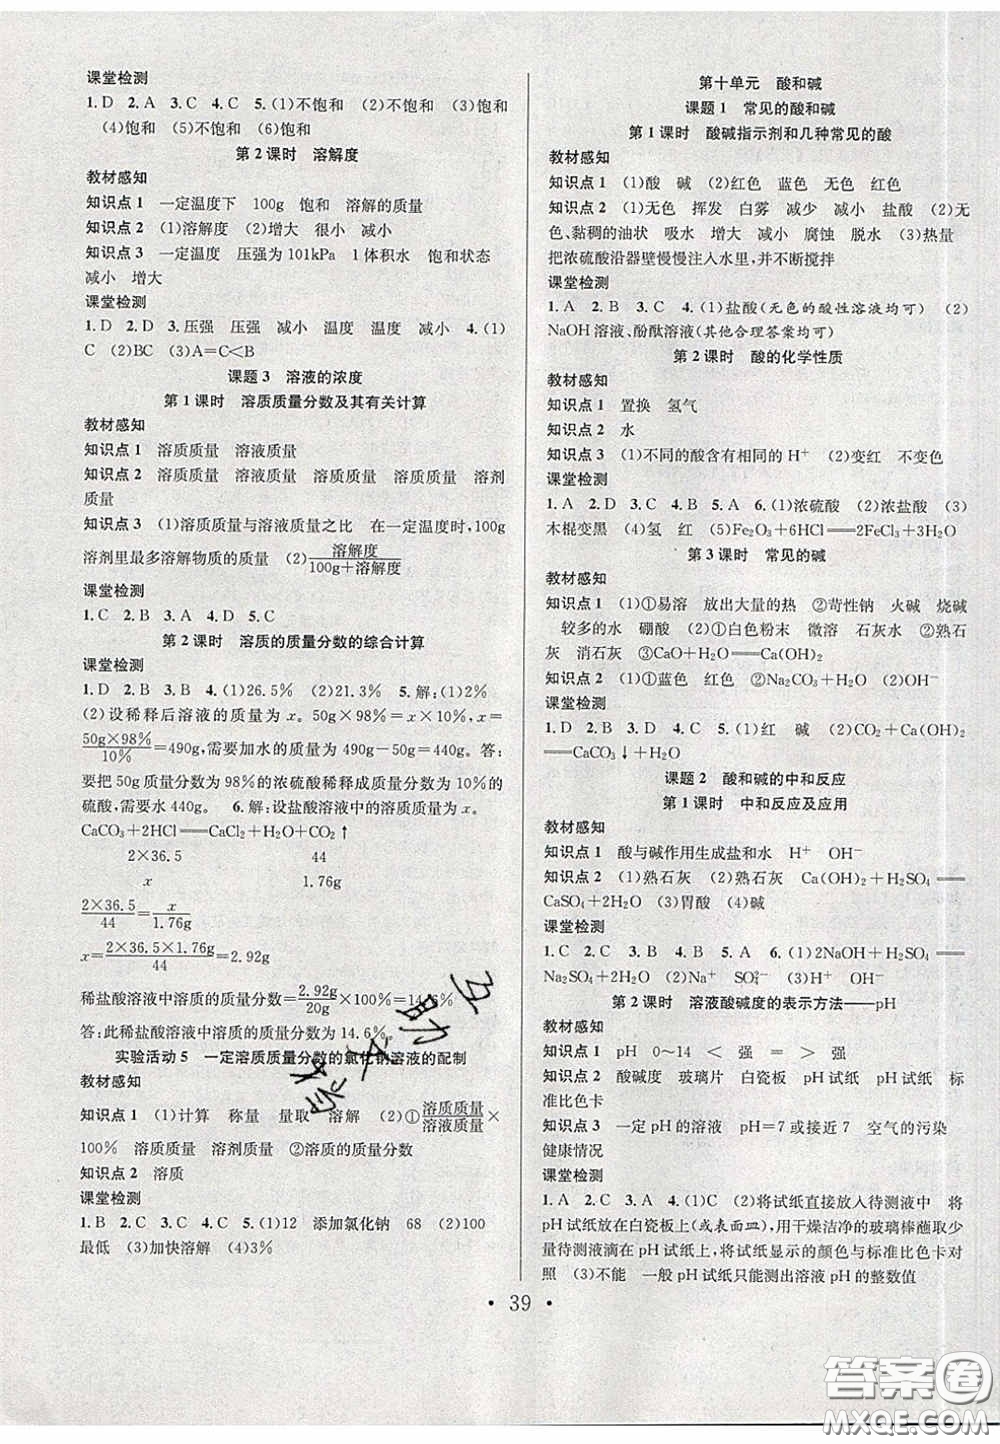 课堂检测
1.D 2.A 3.C 4.C 5.(1)不饱和 (2)不饱和 (3)饱和
(4)饱和 (5)不饱和 (6)饱和
第2课时 溶解度
教材感知
知识点1 一定温度下 100g 饱和 溶解的质量
知识点2 (1)溶解度 (2)增大 很小 减小
知识点3 一定温度 压强为101kPa 1体积水 饱和状态
减小 增大
课堂检测
1.D 2.D 3.压强 压强 减小 温度 温度 减小 4.(1)
C (2)BC (3)A=C<B
课题3 溶液的浓度
第1课时 溶质质量分数及其有关计算
教材感知
知识点1 溶质质量 溶液质量
知识点2 溶质质量 溶液质量 溶质质量 溶质质量 溶剂
质量
知识点3 (1)溶质质量与溶液质量之比 在一定温度时,100g
溶剂里最多溶解物质的质量 (2)溶解度/100g+溶解度
课堂检测
1.C 2.B 3.A 4.D 5.C
第2课时 溶质的质量分数的综合计算
课堂检测
1.D 2.B 3.B 4.(1)26.5% (2)21.3% 5.解:(1)2%
(2)设稀释后溶液的质量为x。50g×98%=x×10%,x=
50g×98%/10%=490g,需要加水的质量为490g-50g=440g。答:
要把50g质量分数为98%的浓硫酸稀释成质量分数为10%的
硫酸,需要水440g。 6.解:设盐酸溶液中的溶质质量为x。
CaCO₃+2HCl══CaCl₂+H₂O+CO₂↑
2×36.5 44
x 1.76g
2×36.5/44=x/1.76g
x=2×36.5×1.76g/44=2.92g
稀盐酸溶液中溶质的质量分数=2.92g/20g×100%=14.6%
答:此稀盐酸溶液中溶质的质量分数为14.6%
实验活动5 一定溶质质量分数的氯化钠溶液的配制
教材感知
知识点1 (1)计算 称量 量取 溶解 (2)①溶质质量/溶液质量×
100% 溶质质量 溶剂质量 ②溶质的质量分数
知识点2 溶质
课堂检测
1.B 2.C 3.A 4.B 5.(1)12 添加氯化钠 68 (2)100
最低 (3)加快溶解 (4)3%
第十单元 酸和碱
课题1 常见的酸和碱
第1课时 酸碱指示剂和几种常见的酸
教材感知
知识点1 (1)酸 碱 (2)红色 蓝色 无色 红色
知识点2 (1)无色 挥发 白雾 减少 减小 盐酸 (2)无
色、黏稠的油状 吸水 增大 减小 腐蚀 脱水 (3)热量
把浓硫酸沿器壁慢慢注入水里,并不断搅拌
课堂检测
1.A 2.B 3.C 4.(1)盐酸(无色的酸性溶液均可) (2)
NaOH溶液、酚酞溶液(其他合理答案均可)
第2课时 酸的化学性质
教材感知
知识点1 置换 氢气
知识点2 水
知识点3 (1)不同的酸含有相同的H⁺ (2)变红 不变色
课堂检测
1.A 2.D 3.C 4.B 5.A 6.(1)浓硫酸 (2)浓盐酸 (3)
木棍变黑 (4)氢 红 (5)Fe₂O₃+6HCl══2FeCl₃+3H₂O
第3课时 常见的碱
教材感知
知识点1 (1)①易溶 放出大量的热 ②苛性钠 火碱 烧碱
较多的水 硼酸 (2)①白色粉末 微溶 石灰水 ②熟石
灰 消石灰 ③CaO+H₂O══Ca(OH)₂
知识点2 (1)①蓝色 红色 ②Na₂CO₃+H₂O (2)OH⁻
课堂检测
1.D 2.D 3.D 4.C 5.(1)红 碱 (2)CO₂+Ca(OH)₂
══CaCO₃↓+H₂O
课题2 酸和碱的中和反应
第1课时 中和反应及应用
教材感知
知识点1 酸与碱作用生成盐和水 H⁺ OH⁻
知识点2 (1)熟石灰 (2)熟石灰 Ca(OH)₂+H₂SO₄══
CaSO₄+2H₂O (3)胃酸 (4)碱
课堂检测
1.C 2.C 3.B 4.A 5.A 6.(1)2NaOH+H₂SO₄══
Na₂SO₄+2H₂O (2)Na⁺ SO₄²⁻ (3)H⁺ OH⁻
第2课时 溶液酸碱度的表示方法——pH
知识点1 pH 0~14 < 强 = > 强
知识点2 酸碱度 玻璃片 白瓷板 pH试纸 pH试纸 标
准比色卡
知识点3 一定pH的溶液 pH=7或接近7 空气的污染
健康情况
课堂检测
1.A 2.C 3.A 4.(1)C (2)将试纸直接放入待测液中 将
pH试纸放在白瓷板上(或表面皿),用干燥洁净的玻璃棒蘸取少
量待测液滴在pH试纸上,将试纸显示的颜色与标准比色卡对
照 (3)不能 一般pH试纸只能测出溶液pH的整数值
• 39 •
答案圈
MXQE.COM